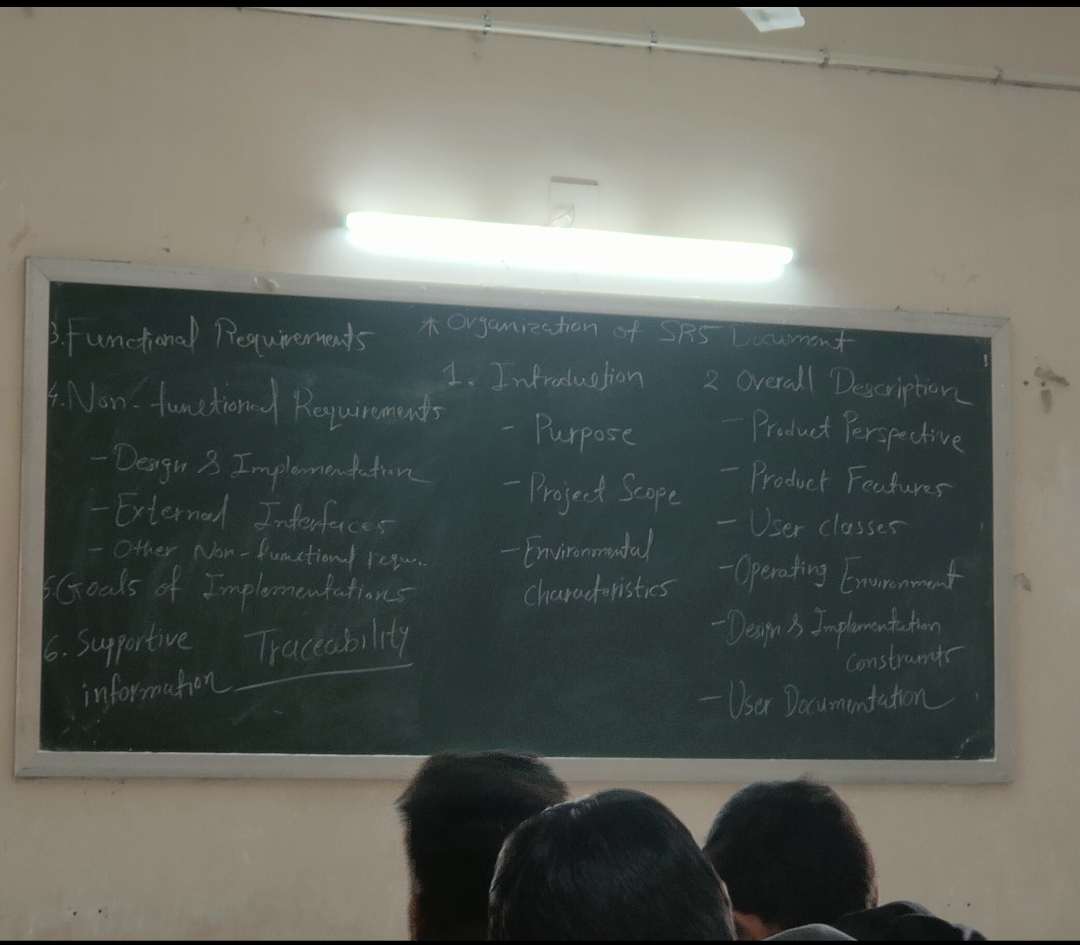 * Organization of SRS Document
1. Introduction
- Purpose
- Project Scope
- Environmental
characteristics
2 Overall Description
- Product Perspective
- Product Features
- User classes
- Operating Environment
- Design & Implementation
constraints
- User Documentation
3. Functional Requirements
4. Non-functional Requirements
- Design & Implementation
- External Interfaces
- Other Non-functional requ...
5. Goals of Implementations
6. Supportive
information
Traceability